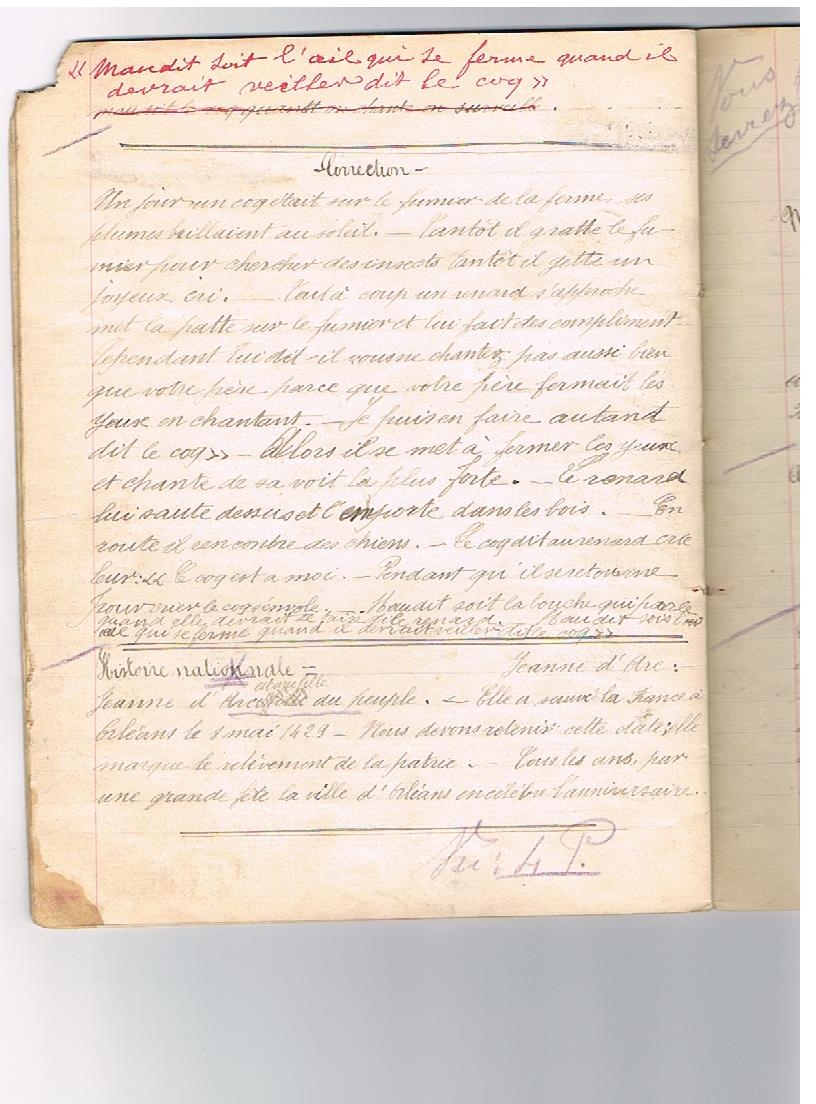 « Maudit soit l'œil qui se ferme quand il
devrait veiller dit le coq »
maudit le coq quand on chante on surveille.
Correction
Un jour un coq était sur le fumier de la ferme, ses
plumes brillaient au soleil. — Tantôt il gratte le fu-
mier pour chercher des insects tantôt il gette un
joyeux cri. Tout à coup un renard s'approche
met la patte sur le fumier et lui fait des compliment
Cependant lui dit-il vous ne chantez pas aussi bien
que votre père parce que votre père fermait les
yeux en chantant. — Je puis en faire autand
dit le coq » — Alors il se met à fermer les yeux
et chante de sa voit la plus forte. — Le renard
lui saute dessus et l'emporte dans les bois. — En
route il rencontre des chiens. — Le coq dit au renard crie
leur: « Le coq est a moi. — Pendant qu'il se retourne
pour crier le coq s'envole. — Maudit soit la bouche qui parle
quand elle devrait se taire dit le renard. Maudit soit l'
œil qui se ferme quand il devrait veiller dit le coq »
Histoire nationale — Jeanne d'Arc :
Jeanne d'Arc était fille du peuple. — Elle a sauvé la France à
Orléans le 8 mai 1429 — Nous devons retenir cette date; elle
marque le relèvement de la patrie. — Tous les ans, par
une grande fête la ville d'Orléans en célèbre l'anniversaire.
Vu : 4 P.
Vous
serez